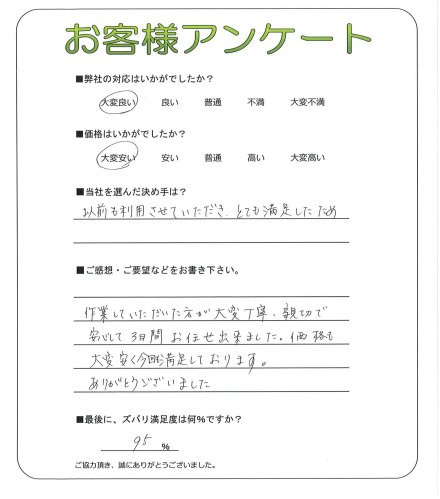 お客様アンケート
■弊社の対応はいかがでしたか？
大変良い 良い 普通 不満 大変不満
■価格はいかがでしたか？
大変安い 安い 普通 高い 大変高い
■当社を選んだ決め手は？
以前も利用させていただき、とても満足したため
■ご感想・ご要望などをお書き下さい。
作業していただいた方が大変丁寧、親切で
安心して3日間お任せ出来ました。価格も
大変安く今回も満足しております。
ありがとうございました
■最後に、ズバリ満足度は何%ですか？
95 %
ご協力頂き、誠にありがとうございました。